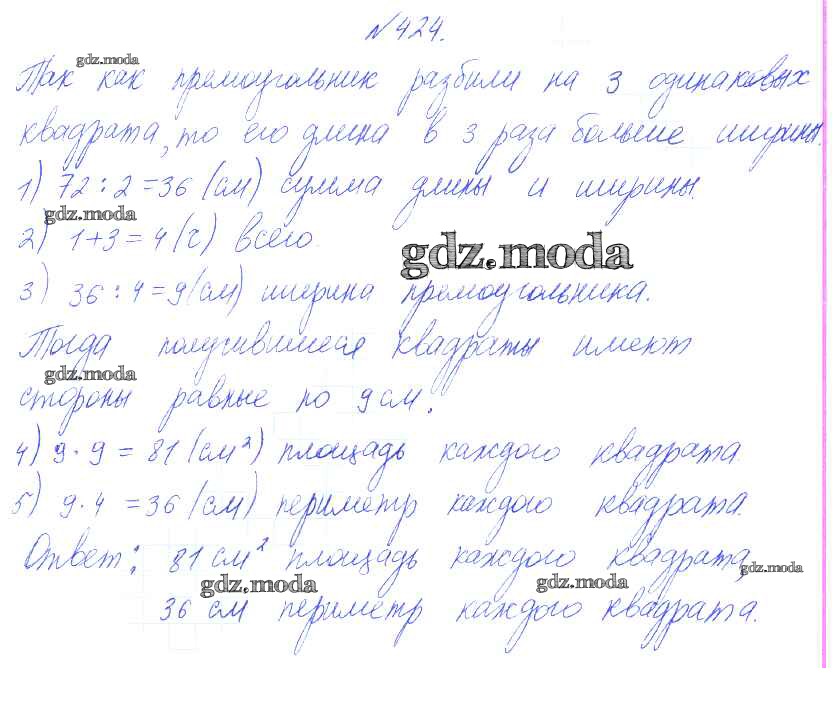 №424.
gdz.moda
Так как прямоугольник разбили на 3 одинаковых
квадрата, то его длина в 3 раза больше ширины.
gdz.moda
1) 72 : 2 = 36 (см) сумма длины и ширины.
gdz.moda
2) 1+3 = 4 (ч) всего.
gdz.moda
3) 36 : 4 = 9 (см) ширина прямоугольника.
Тогда получившиеся квадраты имеют
gdz.moda
стороны равные по 9 см.
4) 9 · 9 = 81 (см²) площадь каждого квадрата.
5) 9 · 4 = 36 (см) периметр каждого квадрата.
Ответ: 81 см² площадь каждого квадрата,
gdz.moda gdz.moda gdz.moda
36 см периметр каждого квадрата.